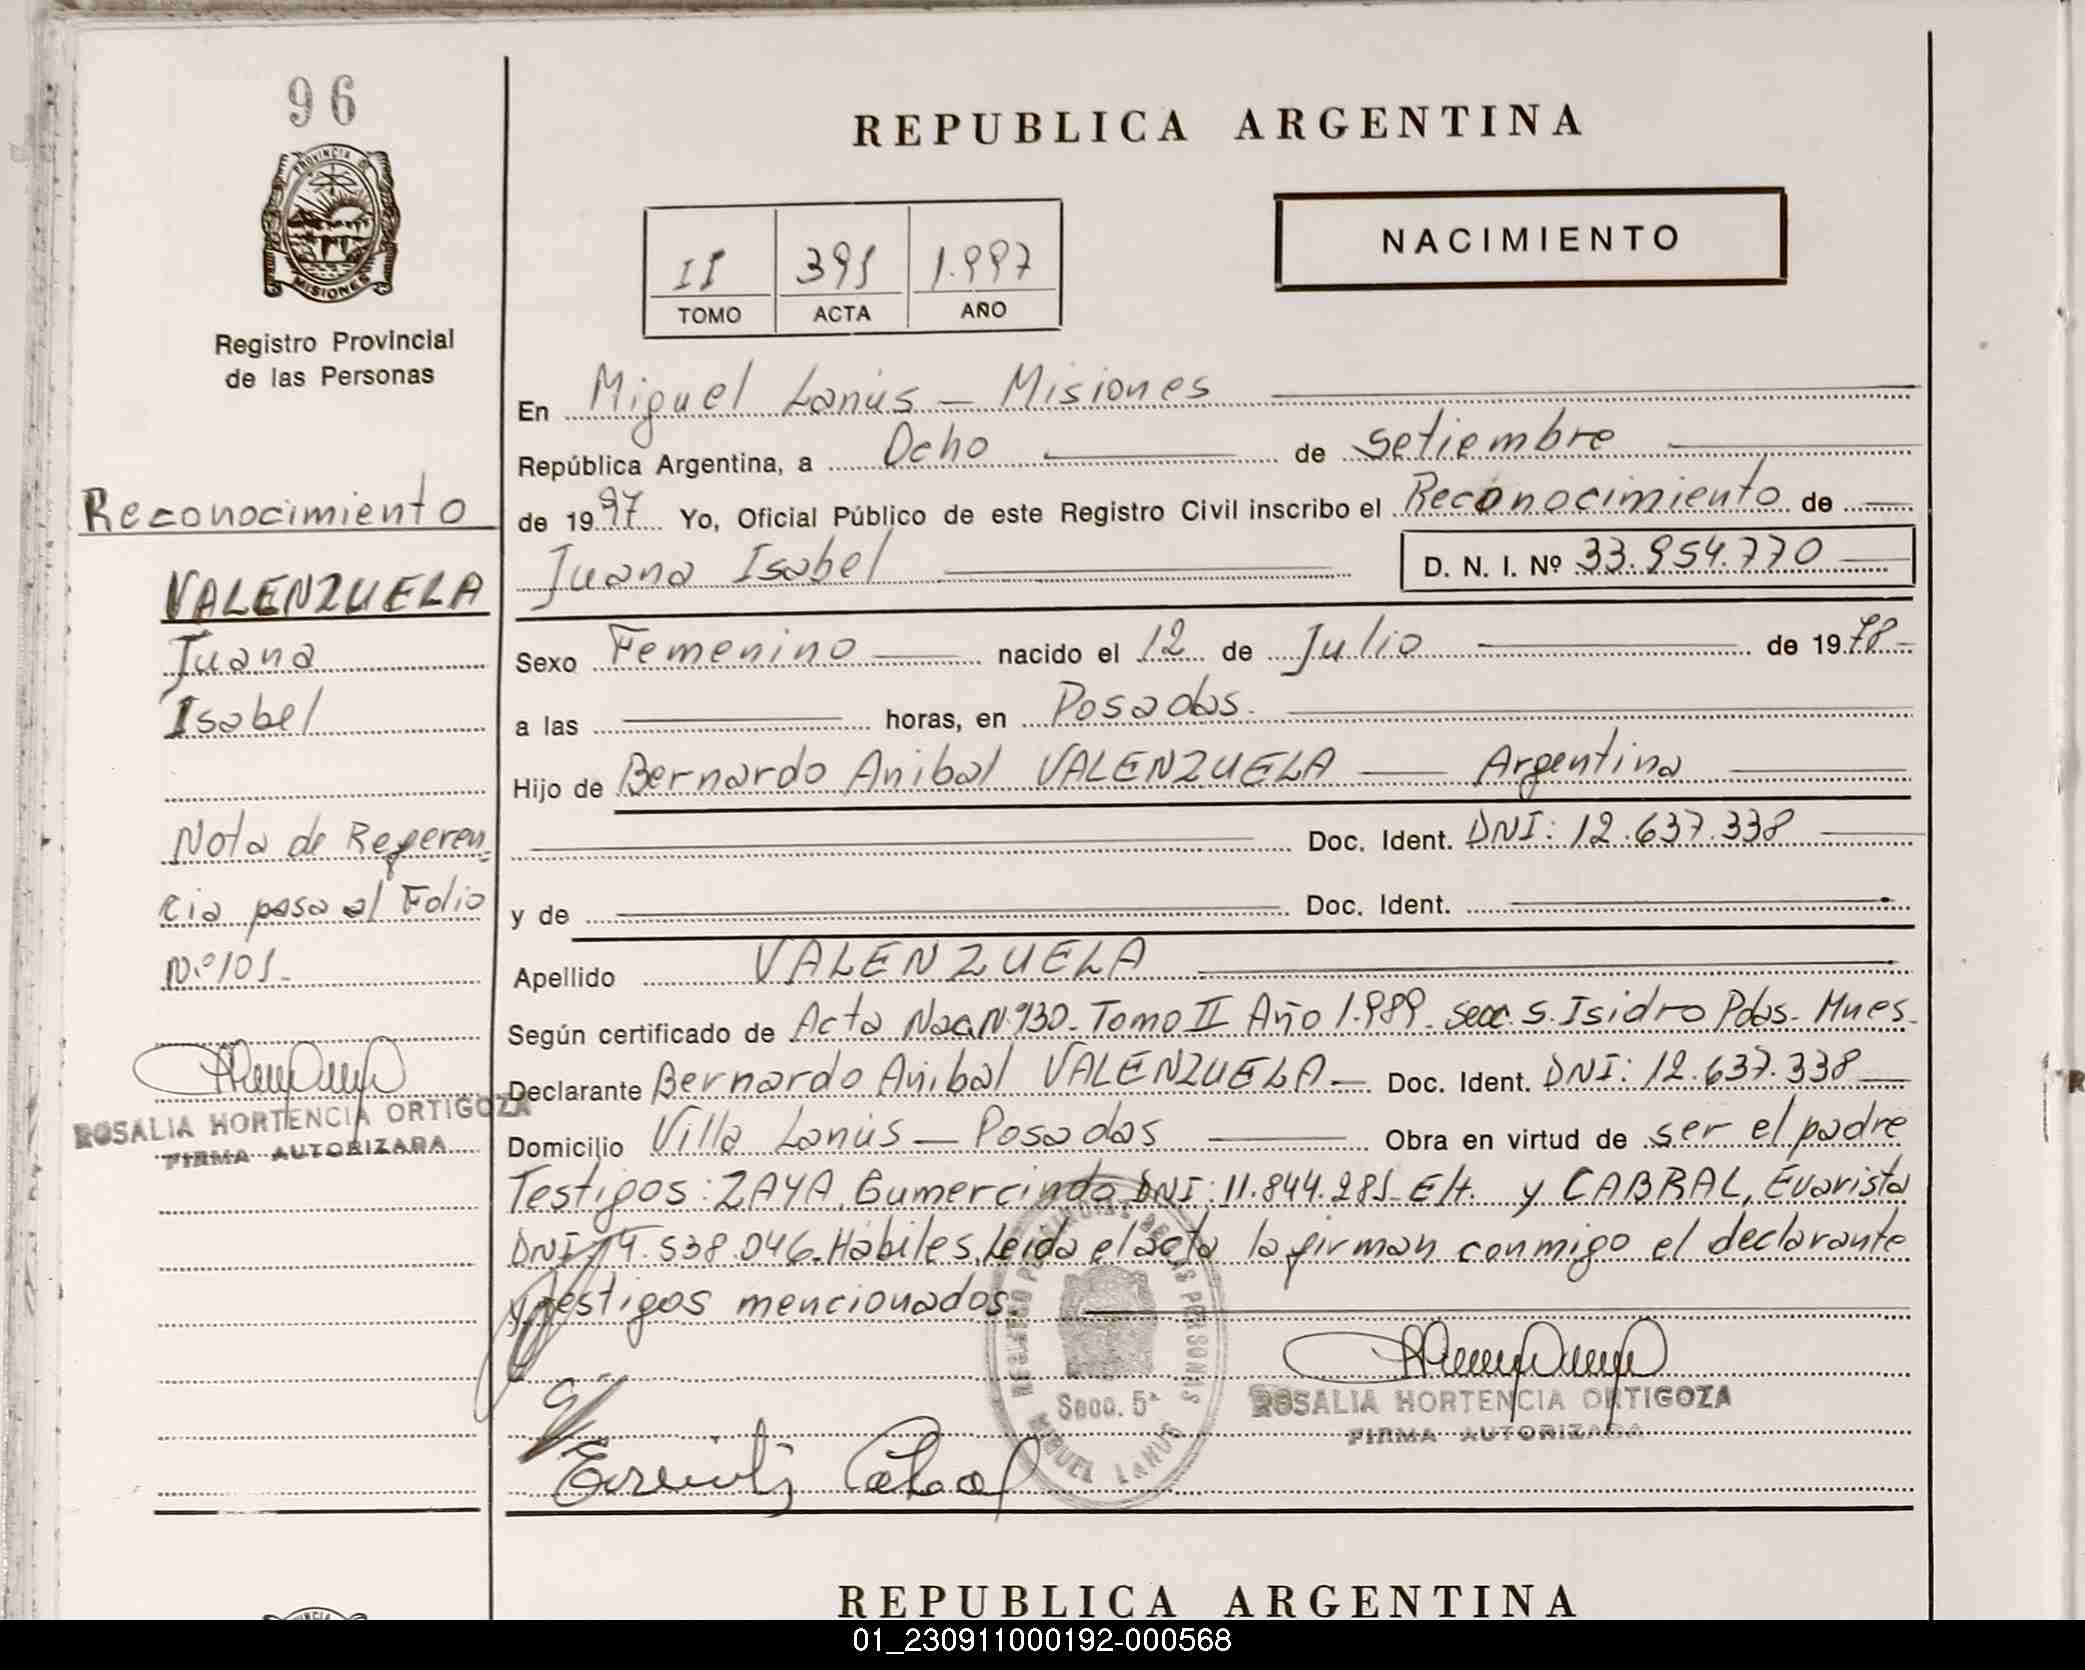 96
PROVINCIA DE
MISIONES
Registro Provincial
de las Personas
Reconocimiento
VALENZUELA
Juana
Isabel
Nota de Referen
cia pasa al Folio
Nº 101.
ROSALIA HORTENCIA ORTIGOZA
FIRMA AUTORIZADA
REPUBLICA ARGENTINA
II 391 1.997
TOMO ACTA AÑO
NACIMIENTO
En Miguel Lanús - Misiones
República Argentina, a Ocho de Setiembre
de 1997 Yo, Oficial Público de este Registro Civil inscribo el Reconocimiento de
Juana Isabel D. N. I. Nº 33.954.770
Sexo Femenino nacido el 12 de Julio de 1978
a las horas, en Posadas.
Hijo de Bernardo Anibal VALENZUELA Argentina
Doc. Ident. DNI: 12.637.338
y de Doc. Ident.
Apellido VALENZUELA
Según certificado de Acta Nac. Nº 930. Tomo II Año 1.989. Secc. S. Isidro Pdas. Mnes.
Declarante Bernardo Anibal VALENZUELA Doc. Ident. DNI: 12.637.338
Domicilio Villa Lanús - Posadas Obra en virtud de ser el padre
Testigos: ZAYA, Gumercindo DNI: 11.844.281 y CABRAL, Evarista
DNI: 14.538.046. Hábiles. Leida el acta la firman conmigo el declarante
y testigos mencionados.
REGISTRO PROVINCIAL DE LAS PERSONAS
Secc. 5ª
MIGUEL LANUS
ROSALIA HORTENCIA ORTIGOZA
FIRMA AUTORIZADA
REPUBLICA ARGENTINA
01_230911000192-000568